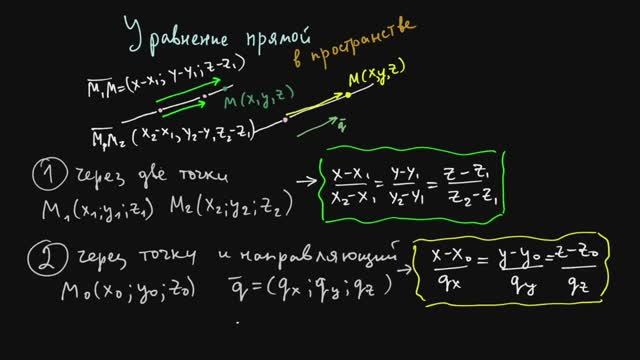 Уравнение прямой
в пространстве
M₁M=(x-x₁; y-y₁; z-z₁)
M(x,y,z)
M(x,y,z)
M₁M₂(x₂-x₁, y₂-y, z₂-z₁)
q̄
① через две точки
M₁(x₁;y₁;z₁) M₂(x₂;y₂;z₂)
→ (x-x₁)/(x₂-x₁) = (y-y₁)/(y₂-y₁) = (z-z₁)/(z₂-z₁)
② через точку и направляющий
M₀(x₀;y₀;z₀) q̄=(qx;qy;qz)
→ (x-x₀)/qx = (y-y₀)/qy = (z-z₀)/qz